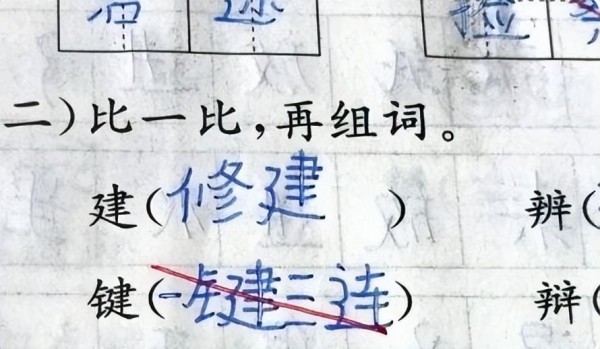 二）比一比，再组词。
建（修建） 辨（
键（一键三连） 辩（